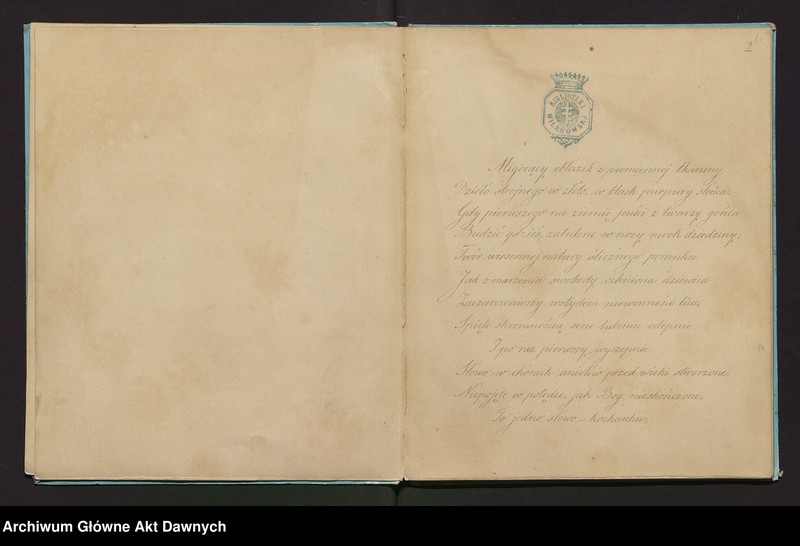 2
BIBLIOTEKA
WILANOWSKA
Migocący obłoczek z promiennej tkaniny
Dzieło strojnego w złoto, w blask purpury słońca,
Gdy pierwszego na ziemię puści z twarzy gońca
Budzić gdzieś, zatulone w nocy mrok dziedziny;
Twór wiosennej natury ślicznego poranku
Jak z marzenia swobody ockniona dziewica
Zaczerwieniwszy wstydem niewinność lica,
Spięte skromnością serce lubemu odepnie
I po raz pierwszy wyszepnie
Słowo w chórach aniołów przed wieki stworzone,
Niepojęte w potędze, jak Bóg nieskończone,
To jedno słowo – kochanku;
Archiwum Główne Akt Dawnych